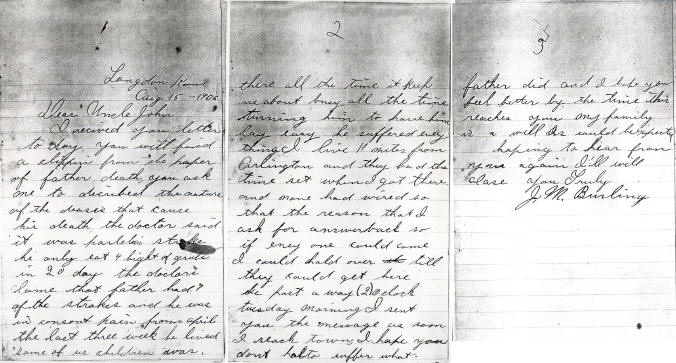 1
Langdon Kans
Aug 15 - 1906
Dear Uncle John
I recived your letter
to day you will find
a clippin from the paper
of father death you ask
me to discribed the nature
of the diseas that cause
his death the doctor said
it was
he only eat 4 bight of
in 20 day the doctors
clame that father had 7
of the strokes and he was
in consont pain from april
the last three week he lived
some of us children was
2
there all the time it keep
us about busy all the time
turning him to have him
lay easy he suffered every
thing I live 11 miles from
Arlington and they had the
time set when I got there
and none had wired so
that the reason that I
ask for answerback so
if eney one could come
I could hold over till
they could get here
he past a way (2) Oclock
tuesday morning I sent
you the message as soon
I reach town I hope you
dont hafto suffer what
3
father did and I hope you
feel better by the time this
reaches you my family
is a well as could be
hoping to hear from
you again I'll will
close you Truly
J. M. Burling